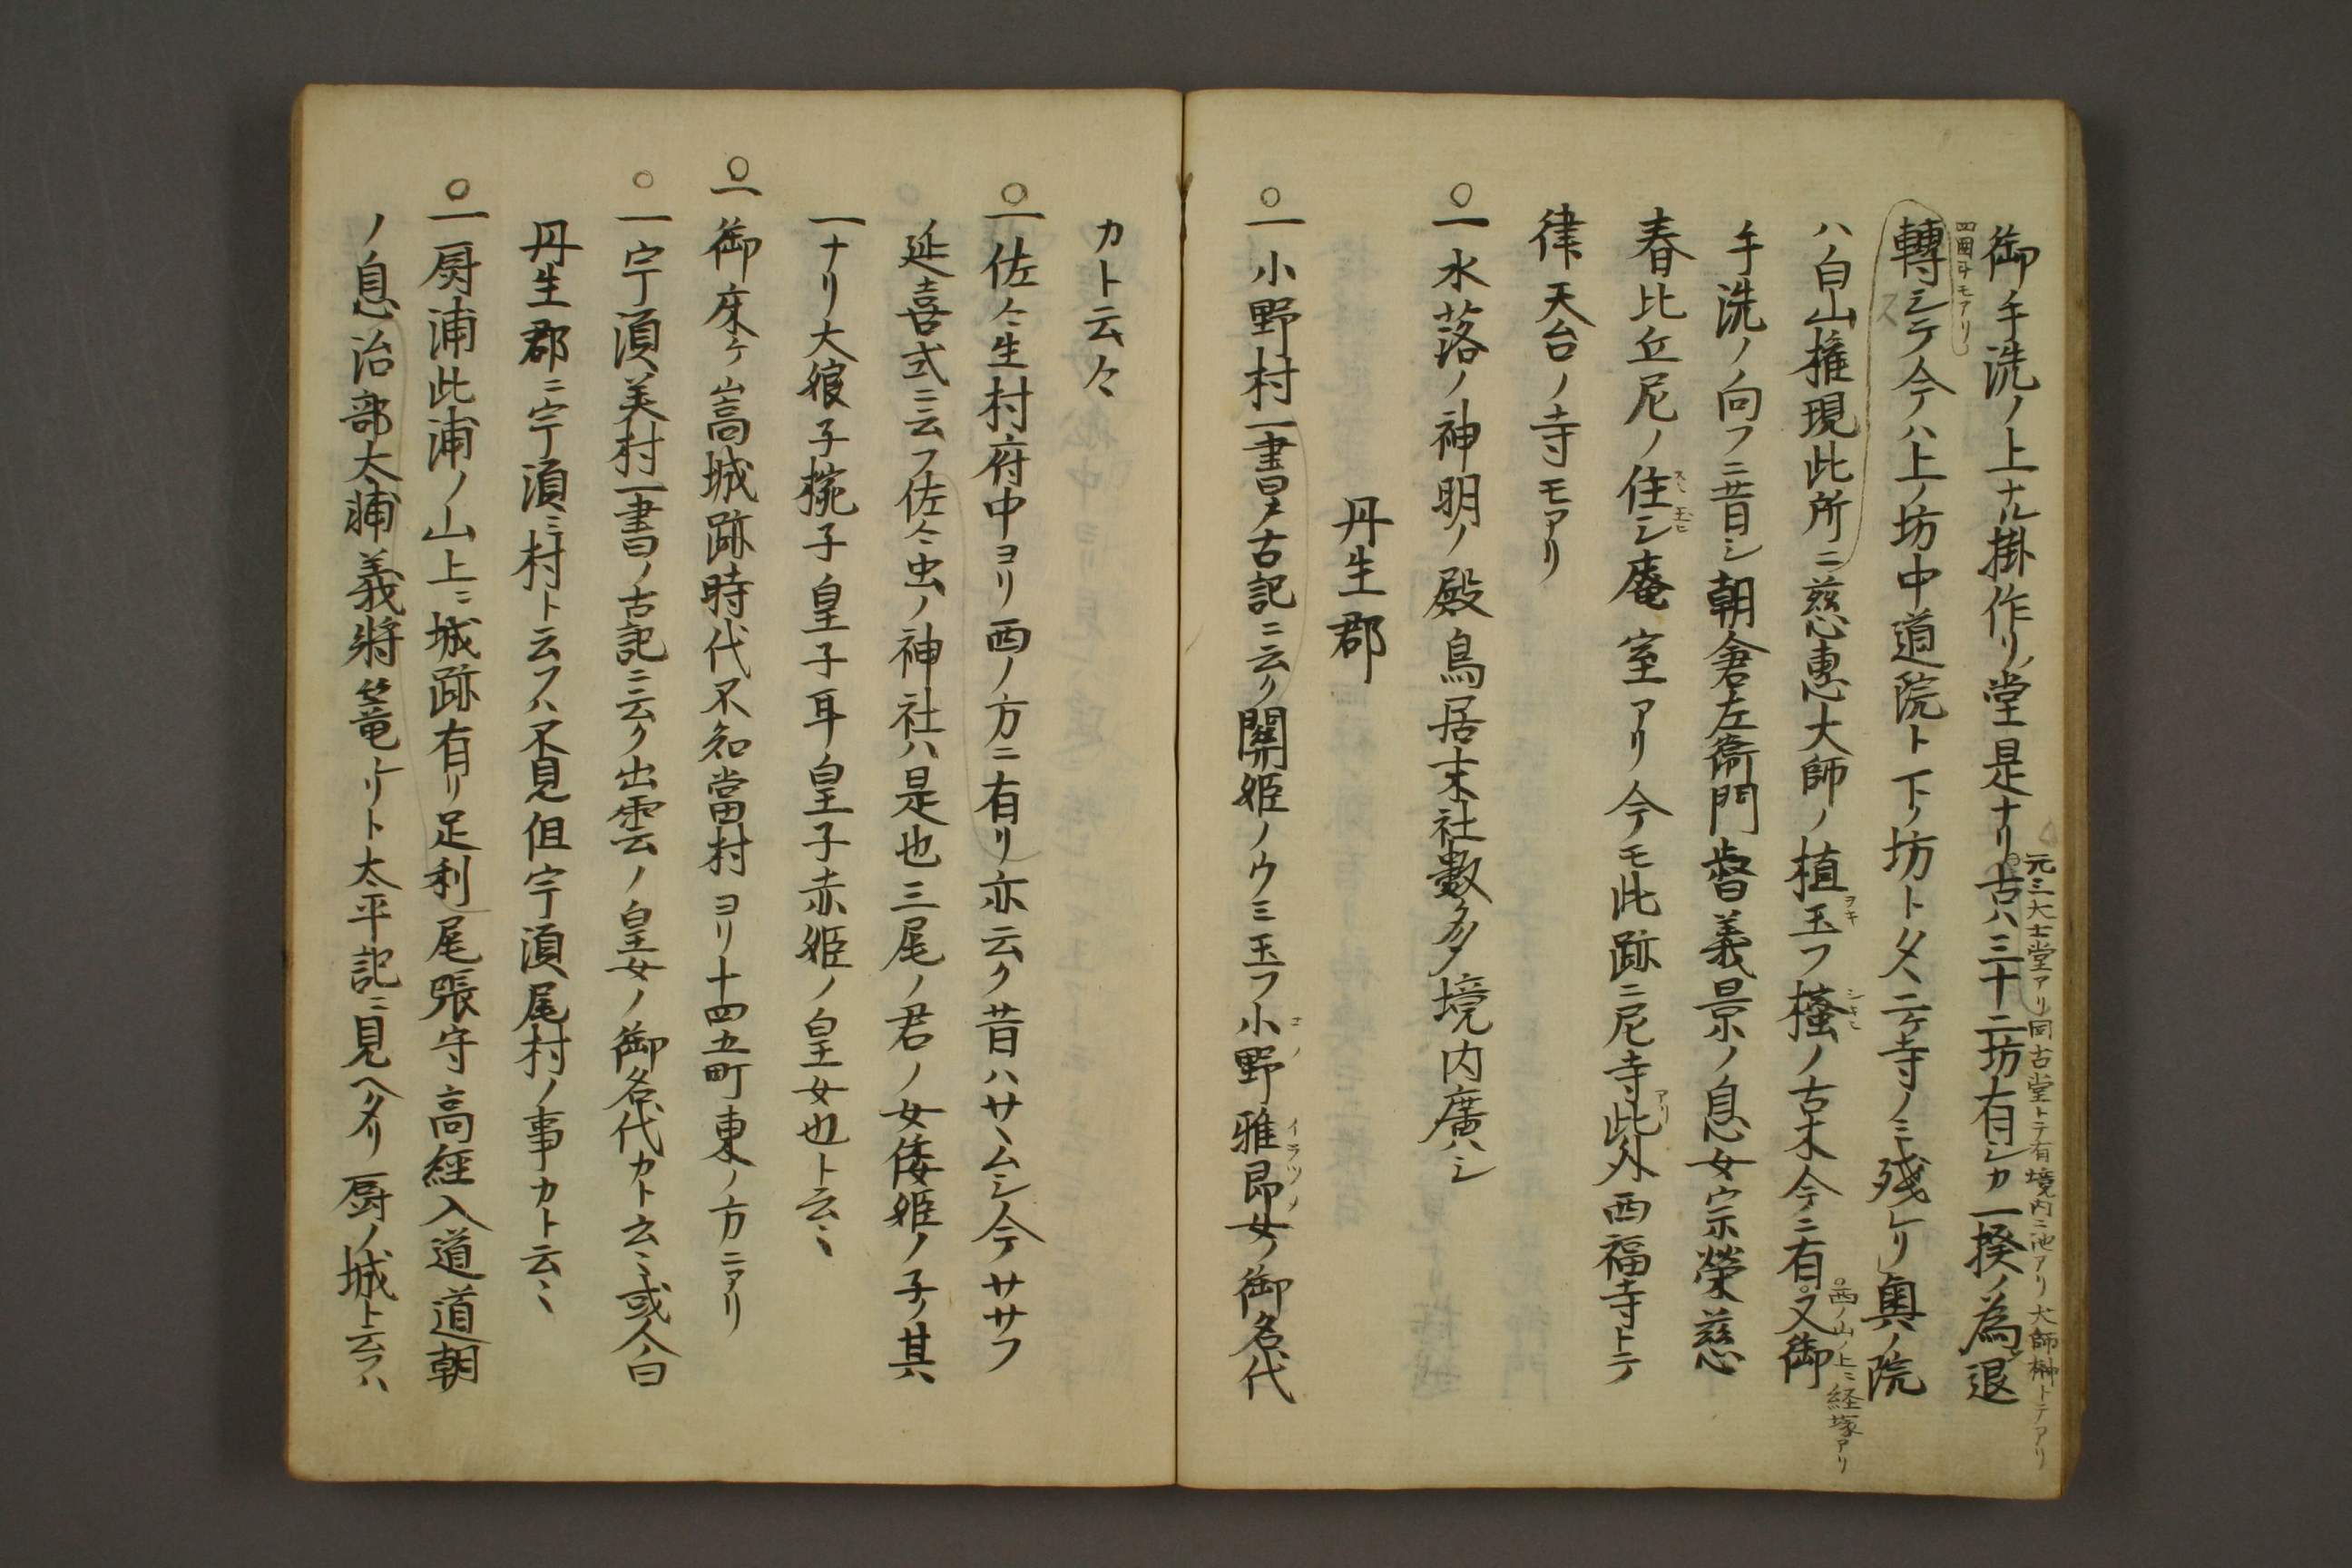 御手洗ノ上ナル掛作リノ堂是ナリ古ハ三十二坊有シカ一揆ノ為ニ退
元三大士堂アリ同古堂トテ有境内ニ池アリ大師榊トテアリ
轉シテ今ハ上ノ坊中道院ト下ノ坊トタヽ二ケ寺ノミ残ケリ奥ノ院
ハ白山権現此所ニ慈惠大師ノ植玉フ櫁ノ古木今ニ有又御
ヲキ
シキミ
西ノ山ノ上ニ経塚アリ
手洗ノ向フニ昔シ朝倉左衞門督義景ノ息女宗榮慈
春比丘尼ノ住シ庵室アリ今モ此跡ニ尼寺此外西福寺トテ
アリ
律天台ノ寺モアリ
○一水落ノ神明ノ殿鳥居末社數多ク境内廣ハシ
丹生郡
○一小野村一書曰ク古記ニ云ク開姫ノウミ玉フ小野雅郎女ノ御名代
コノ
イラツノ
カト云々
○一佐々生村府中ヨリ西ノ方ニ有リ亦云ク昔ハサヽムシ今サササフ
延喜式ニ云フ佐々虫ノ神社ハ是也三尾ノ君ノ女倭姫ノ子ノ其
一ナリ大娘子椀子皇子耳ノ皇子赤姫ノ皇女也ト云ミ
○一御床ケ嵩城跡時代不知當村ヨリ十四五町東ノ方ニアリ
○一宇須美村一書曰ノ古記ニ云ク出雲ノ皇女ノ御名代カト云ミ或人曰
丹生郡ニ宇須ミ村ト云フハ不見但宇須尾村ノ事カト云ミ
○一厨浦此浦ノ山上ニ城跡有リ足利尾張守高經入道道朝
ノ息治部大輔義將篭ケリト太平記ニ見ヘタリ厨ノ城ト云フハ